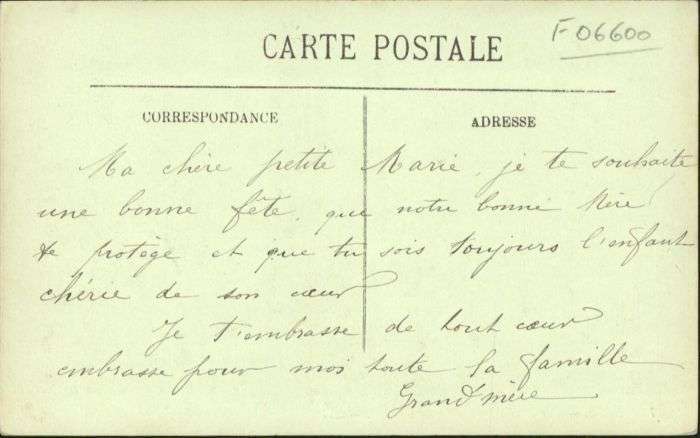 F 06600
CARTE POSTALE
CORRESPONDANCE
ADRESSE
Ma chère petite Marie, je te souhaite
une bonne fête, que notre bonne Mère
te protège et que tu sois toujours l'enfant
chérie de son cœur
Je t'embrasse de tout cœur
embrasse pour moi toute la famille
Grand mère